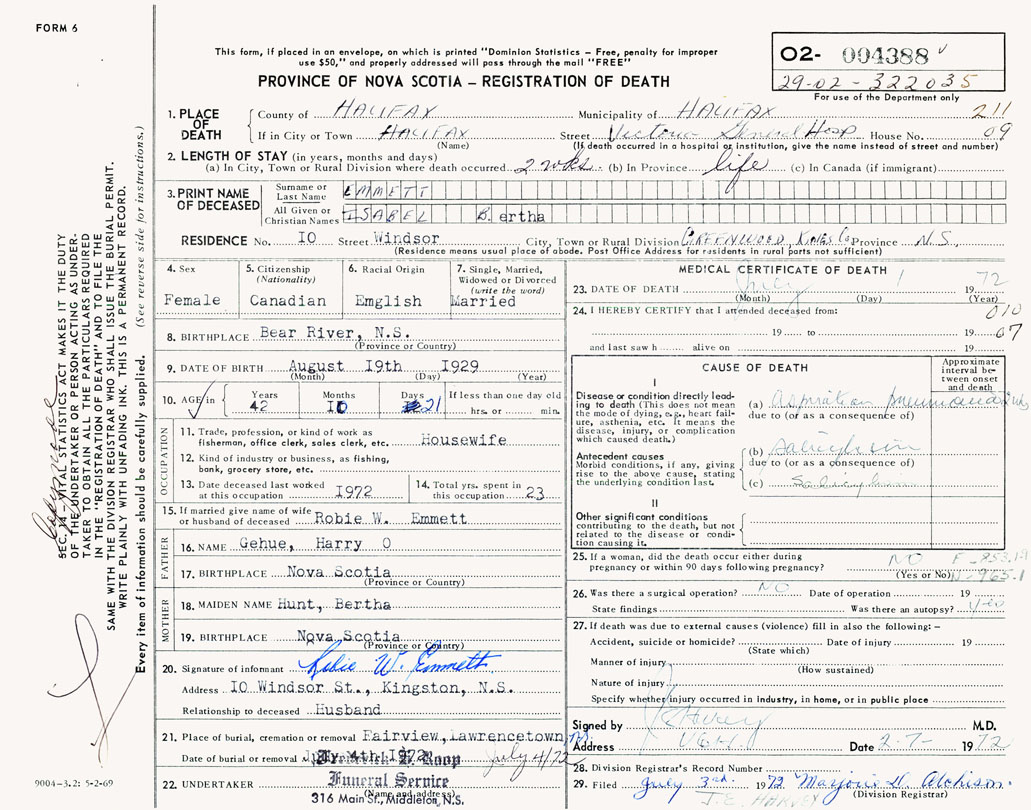 FORM 6
This form, if placed in an envelope, on which is printed "Dominion Statistics – Free, penalty for improper
use $50," and properly addressed will pass through the mail "FREE"
PROVINCE OF NOVA SCOTIA – REGISTRATION OF DEATH
02- 004388
29-02-322035
For use of the Department only
SEC. 14–VITAL STATISTICS ACT MAKES IT THE DUTY
OF THE UNDERTAKER OR PERSON ACTING AS UNDER-
TAKER TO OBTAIN ALL THE PARTICULARS REQUIRED
IN THE "REGISTRATION OF DEATH" AND TO FILE THE
SAME WITH THE DIVISION REGISTRAR WHO SHALL ISSUE THE BURIAL PERMIT.
WRITE PLAINLY WITH UNFADING INK. THIS IS A PERMANENT RECORD.
Every item of information should be carefully supplied. (See reverse side for instructions.)
1. PLACE OF DEATH
County of HALIFAX Municipality of HALIFAX 211
If in City or Town HALIFAX Street Victoria General Hosp House No. 09
(Name) (If death occurred in a hospital or institution, give the name instead of street and number)
2. LENGTH OF STAY (in years, months and days)
(a) In City, Town or Rural Division where death occurred 2 wks. (b) In Province life (c) In Canada (if immigrant)
3. PRINT NAME OF DECEASED
Surname or Last Name EMMETT
All Given or Christian Names ISABEL B.ertha
RESIDENCE No. IO Street Windsor City, Town or Rural Division GREENWOOD, KINGS Co Province N.S.
(Residence means usual place of abode. Post Office Address for residents in rural parts not sufficient)
4. Sex Female
5. Citizenship (Nationality) Canadian
6. Racial Origin Emglish
7. Single, Married, Widowed or Divorced (write the word) Married
8. BIRTHPLACE Bear River, N.S.
(Province or Country)
9. DATE OF BIRTH August I9th I929
(Month) (Day) (Year)
10. AGE in Years 42 Months IO Days 21 If less than one day old hrs. or min.
OCCUPATION
11. Trade, profession, or kind of work as
fisherman, office clerk, sales clerk, etc. Housewife
12. Kind of industry or business, as fishing,
bank, grocery store, etc.
13. Date deceased last worked at this occupation I972
14. Total yrs. spent in this occupation 23
15. If married give name of wife
or husband of deceased Robie W. Emmett
FATHER
16. NAME Gehue, Harry O
17. BIRTHPLACE Nova Scotia
(Province or Country)
MOTHER
18. MAIDEN NAME Hunt, Bertha
19. BIRTHPLACE Nova Scotia
(Province or Country)
20. Signature of informant Robie W. Emmett
Address IO Windsor St., Kingston, N.S.
Relationship to deceased Husband
21. Place of burial, cremation or removal Fairview, Lawrencetown
Date of burial or removal July 4th 1972 July 4/72
22. UNDERTAKER Roop
Funeral Service
(Name and address)
316 Main St., Middleton, N.S.
9004-3.2: 5-2-69
MEDICAL CERTIFICATE OF DEATH
23. DATE OF DEATH July 1 1972
(Month) (Day) (Year)
24. I HEREBY CERTIFY that I attended deceased from: 010
19 to 19 07
and last saw h alive on 19
CAUSE OF DEATH
Approximate interval between onset and death
I
Disease or condition directly lead-
ing to death (This does not mean
the mode of dying, e.g., heart fail-
ure, asthenia, etc. It means the
disease, injury, or complication
which caused death.)
(a) aspiration pneumonia
due to (or as a consequence of)
Antecedent causes
Morbid conditions, if any, giving
rise to the above cause, stating
the underlying condition last.
(b)
due to (or as a consequence of)
(c)
II
Other significant conditions
contributing to the death, but not
related to the disease or condi-
tion causing it.
25. If a woman, did the death occur either during
pregnancy or within 90 days following pregnancy? NO
(Yes or No)
26. Was there a surgical operation? NO Date of operation 19
State findings Was there an autopsy? yes
27. If death was due to external causes (violence) fill in also the following:–
Accident, suicide or homicide? Date of injury 19
(State which)
Manner of injury
(How sustained)
Nature of injury
Specify whether injury occurred in industry, in home, or in public place
Signed by M.D.
Address V.G.H. Date 2-7- 1972
28. Division Registrar's Record Number
29. Filed July 3rd. 1972 Marjorie H. Atchison.
J.E. HARVEY (Division Registrar)